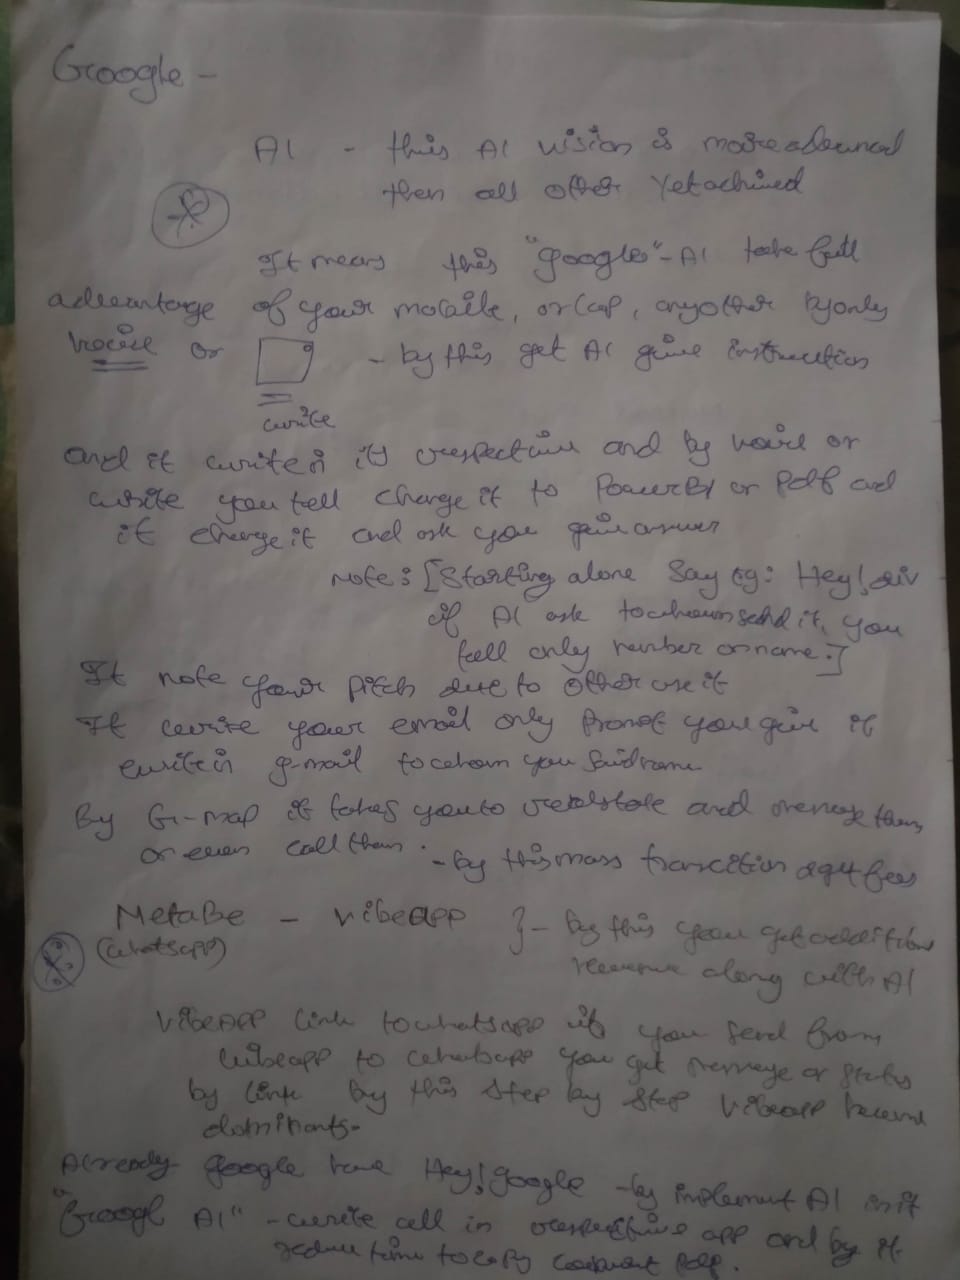 Google -
AI - this AI vision is more advanced
then all other yet achived
It means this "google"-AI take full
advantage of your mobile, or Lap, any other by only
voice or - by this get AI give instruction
write
And it write in it's respective and by voice or
write you tell change it to PowerBI or Pdf and
it change it and ask you give answer
Note: [Starting alone Say eg: Hey!
if AI ask to whom send it, you
tell only number or name.]
It note your pitch due to other use it
It write your email only Promt you give it
write in g-mail to whom you said name
By G-map it takes you to and message them
or even call them. - by this mass fees
MetaBe - VibeApp } - by this you get addition
(whatsapp) revenue along with AI
VibeApp link to whatsapp if you send from
vibeapp to whatsapp you get message or status
by link by this step by step Vibeapp become
dominants.
Already google have Hey! google - by implement AI in it
"Googl AI" - write all in respective app and by it
reduce time to copy convert Pdf.